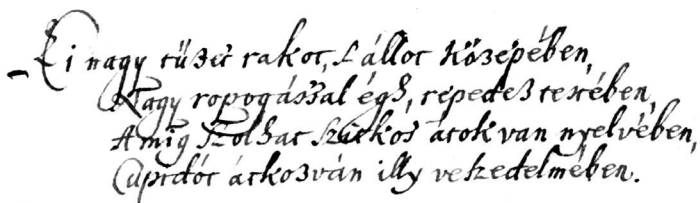 Ki nagy tüzet rakot, s állot közepében,
Nagy ropogással égh, repedez testében,
Amig szolhat szitkos átok van nyelvében,
Cupidót átkozván illy veszedelmében.